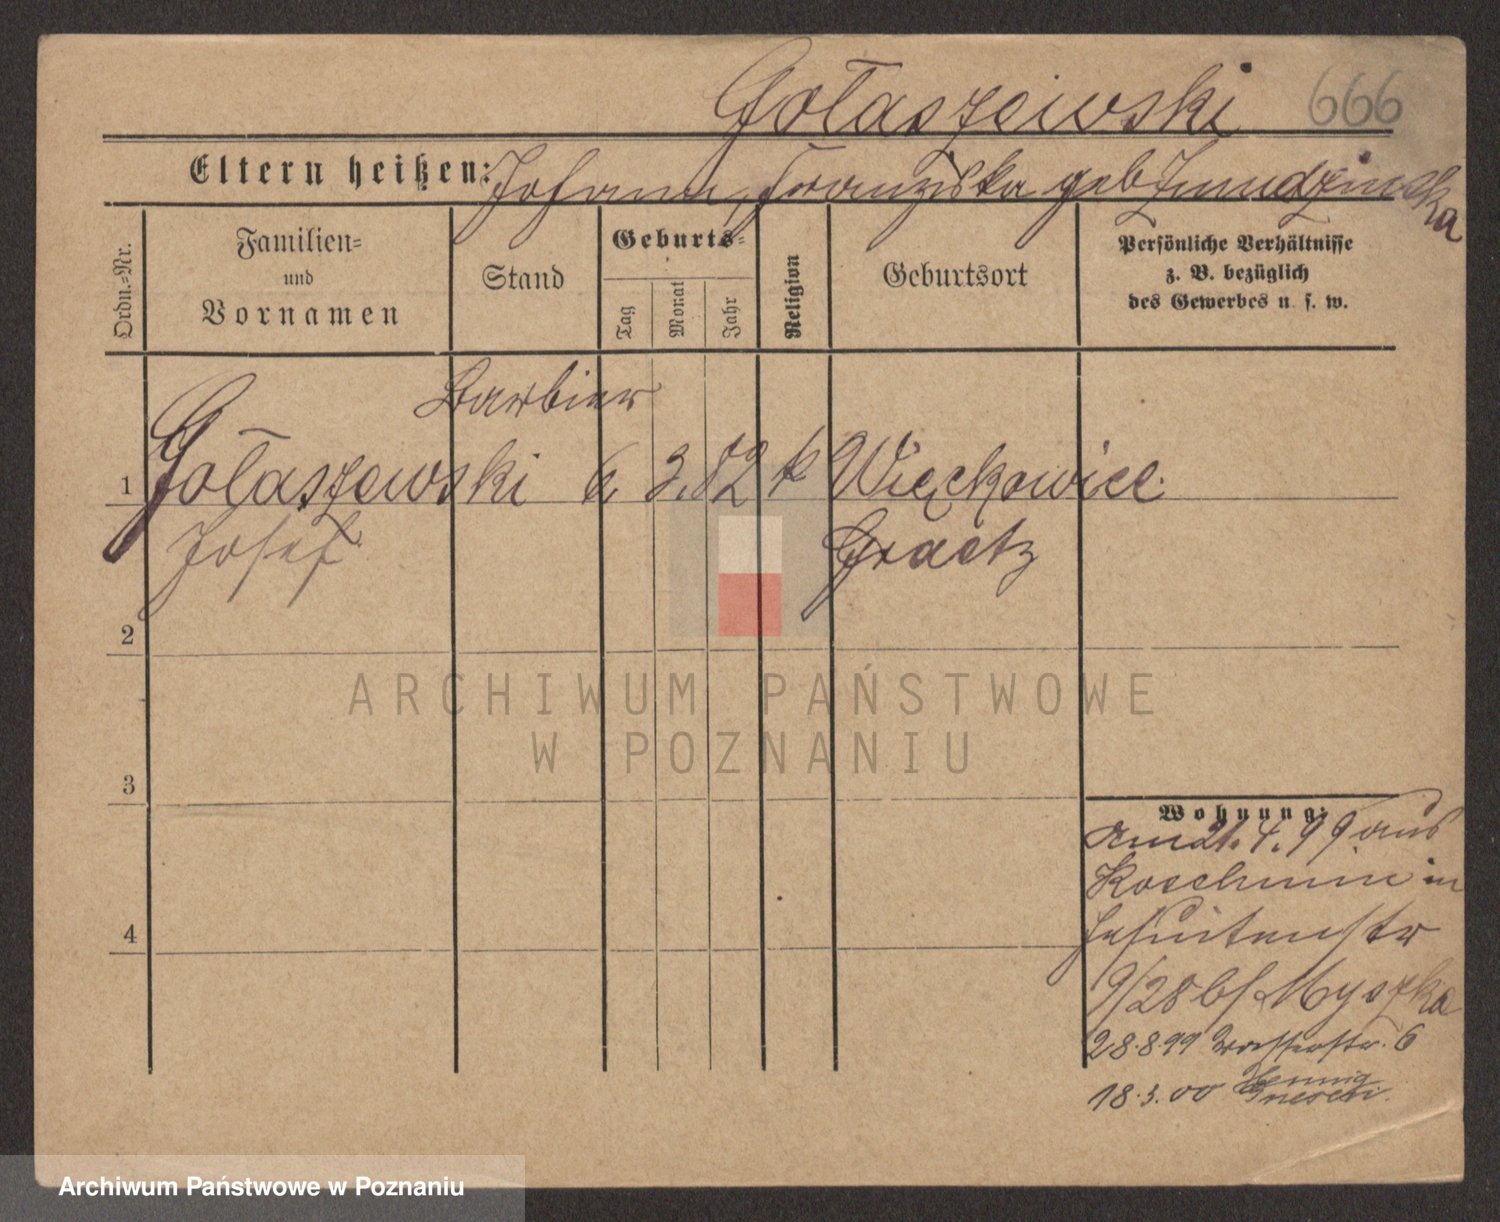 Gołaszewski 666
Eltern heißen: Johann, Franziska geb Zmudzinska
Ordn.-Nr.
Familien-
und
Vornamen
Stand
Geburts-
Tag
Monat
Jahr
Religion
Geburtsort
Persönliche Verhältnisse
z. B. bezüglich
des Gewerbes u. s. w.
Barbier
1 Gołaszewski 6. 3. 82 k Więckowice
Josef Graetz
2
3
4
ARCHIWUM PAŃSTWOWE
W POZNANIU
Wohnung:
am 21. 4. 99 aus
Koschmin in
Jesuitenstr
9/28 b/ Myszka
28.8.99 Wasserstr. 6
18.3.00 Hennig
Gnesen.
Archiwum Państwowe w Poznaniu